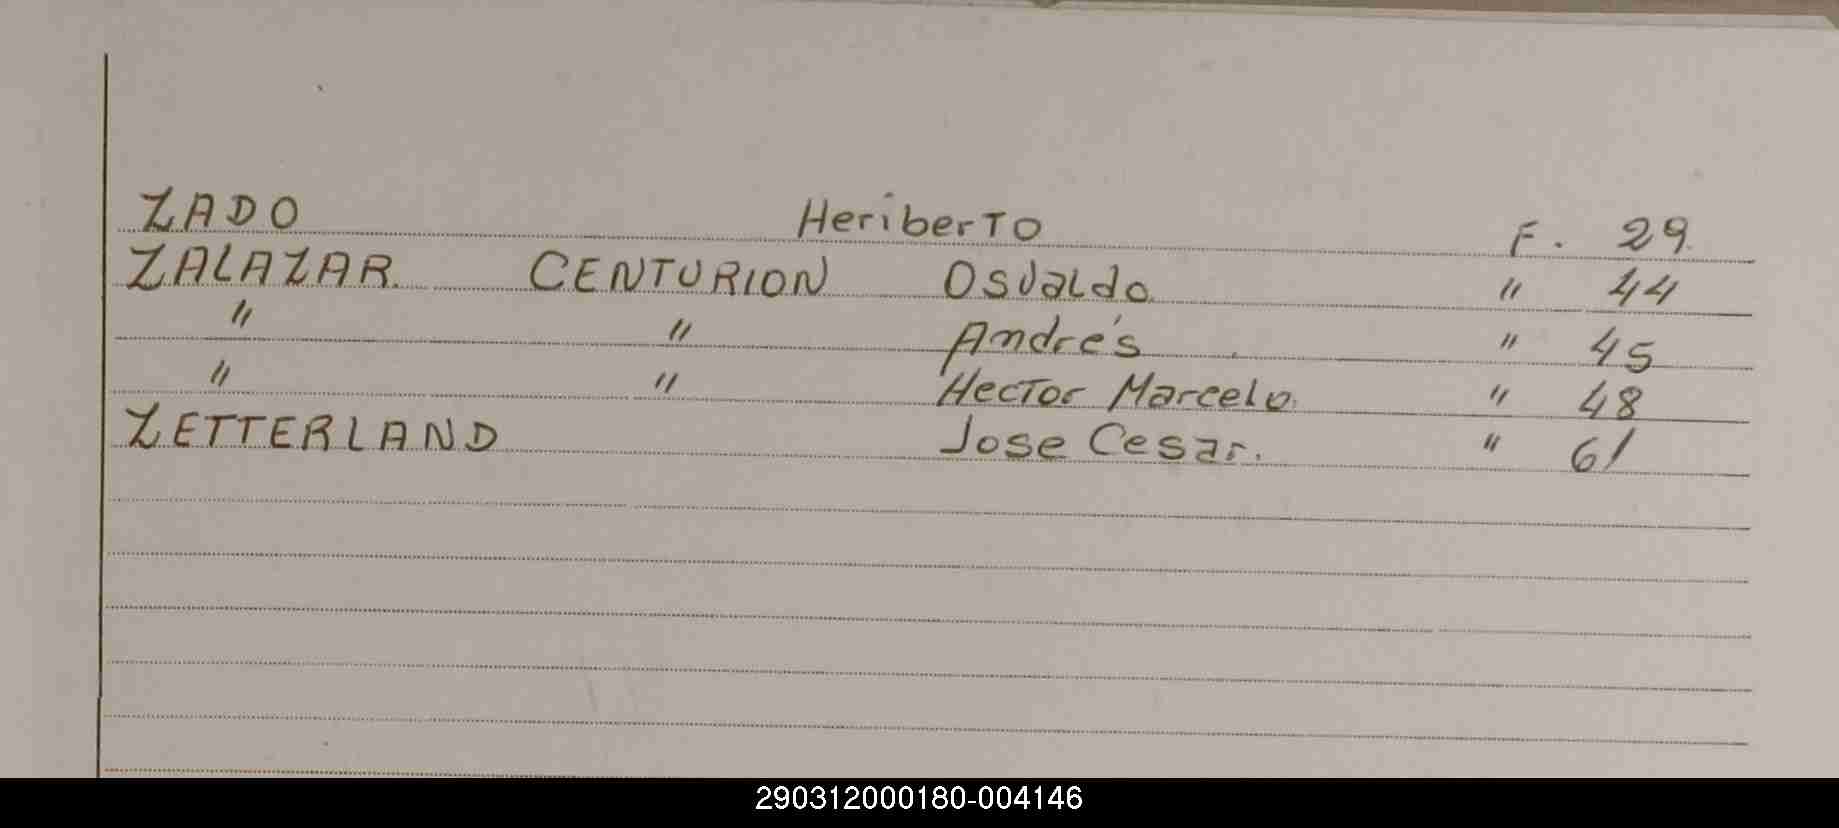 ZADO Heriberto F. 29.
ZALAZAR. CENTURION Osvaldo. " 44
" " Andrés " 45
" " Hector Marcelo. " 48
ZETTERLAND Jose Cesar. " 61
290312000180-004146